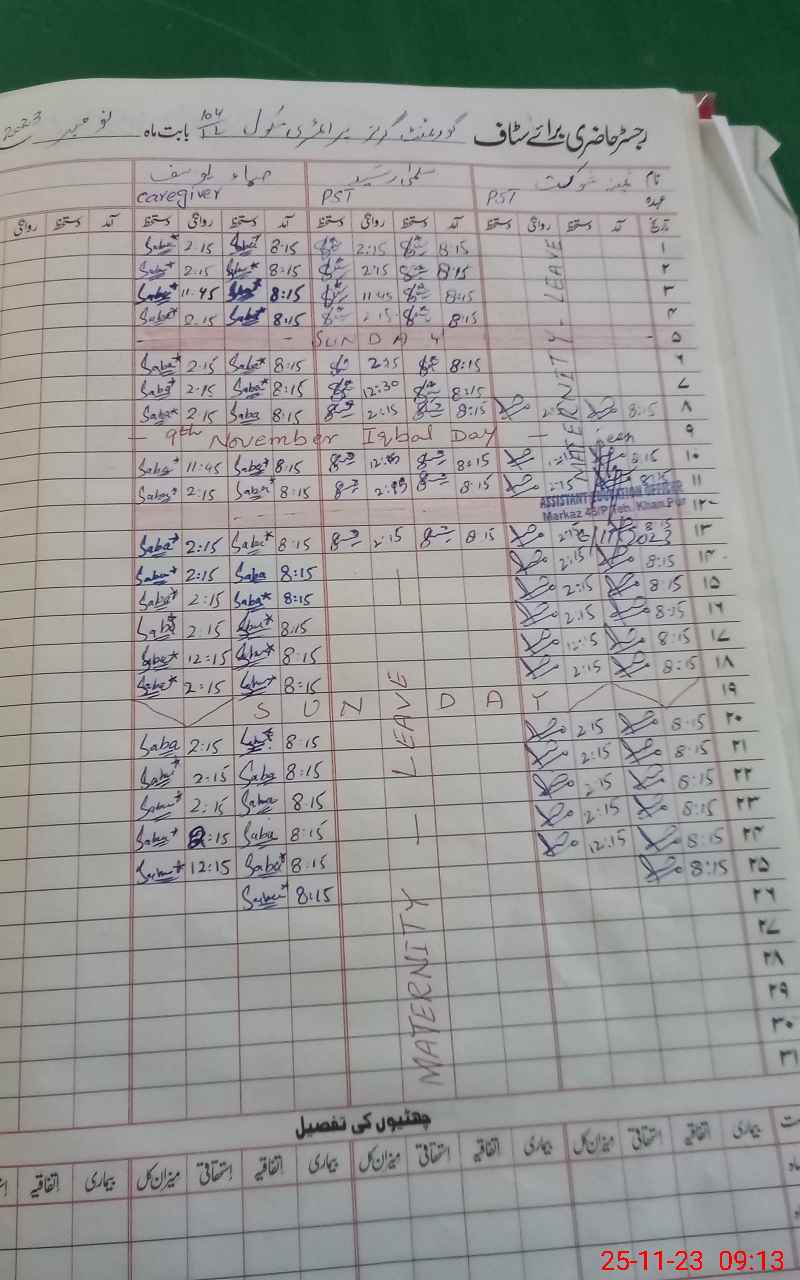 رجسٹر حاضری برائے سٹاف گورنمنٹ گرلز پرائمری سکول 104 بابت ماہ نومبر 2023
نام شوکت سلمیٰ رشید صباء یوسف
عہدہ PST PST caregiver
تاریخ آمد دستخط روانگی دستخط آمد دستخط روانگی دستخط آمد دستخط روانگی دستخط آمد دستخط روانگی
۱ 8:15 2:15 8:15 Saba* 2:15 Saba*
۲ 8:15 2:15 8:15 Saba* 2:15 Saba*
۳ 8:15 11:45 8:15 Saba* 11:45 Saba*
۴ 8:15 2:15 8:15 Saba* 2:15 Saba*
۵ - SUNDAY -
۶ 8:15 2:15 8:15 Saba* 2:15 Saba*
۷ 8:15 12:30 8:15 Saba* 2:15 Saba*
۸ 8:15 2:15 8:15 2:15 8:15 Saba 2:15 Saba*
۹ - 9th November Iqbal Day -
۱۰ 8:15 8:15 8:15 Saba* 11:45 Saba*
seen
۱۱ 8:15 2:15 8:15 8:15 Saba* 2:15 Saba*
ASSISTANT EDUCATION OFFICER
Markaz 43/P Teh. Khan Pur
۱۲
۱۳ 8:15 8:15 2:15 8:15 Saba* 2:15 Saba*
2023
۱۴ 8:15 2:15 8:15 Saba 2:15 Saba*
۱۵ 8:15 2:15 8:15 Saba* 2:15 Saba*
۱۶ 8:15 2:15 8:15 Saba* 2:15 Saba*
۱۷ 8:15 12:15 8:15 Saba* 12:15 Saba*
۱۸ 8:15 2:15 8:15 Saba* 2:15 Saba*
۱۹ SUNDAY
۲۰ 8:15 2:15 8:15 Saba* 2:15 Saba
۲۱ 8:15 2:15 8:15 Saba 2:15 Saba*
۲۲ 8:15 2:15 8:15 Saba 2:15 Saba*
۲۳ 8:15 2:15 8:15 Saba 2:15 Saba*
۲۴ 8:15 12:15 8:15 Saba* 12:15 Saba*
۲۵ 8:15 8:15 Saba*
۲۶
۲۷
۲۸
۲۹
۳۰
۳۱
MATERNITY - LEAVE
MATERNITY — LEAVE —
چھٹیوں کی تفصیل
بیماری اتفاقیہ استحقاقی میزان کل بیماری اتفاقیہ استحقاقی میزان کل بیماری اتفاقیہ استحقاقی میزان کل بیماری اتفاقیہ
25-11-23 09:13